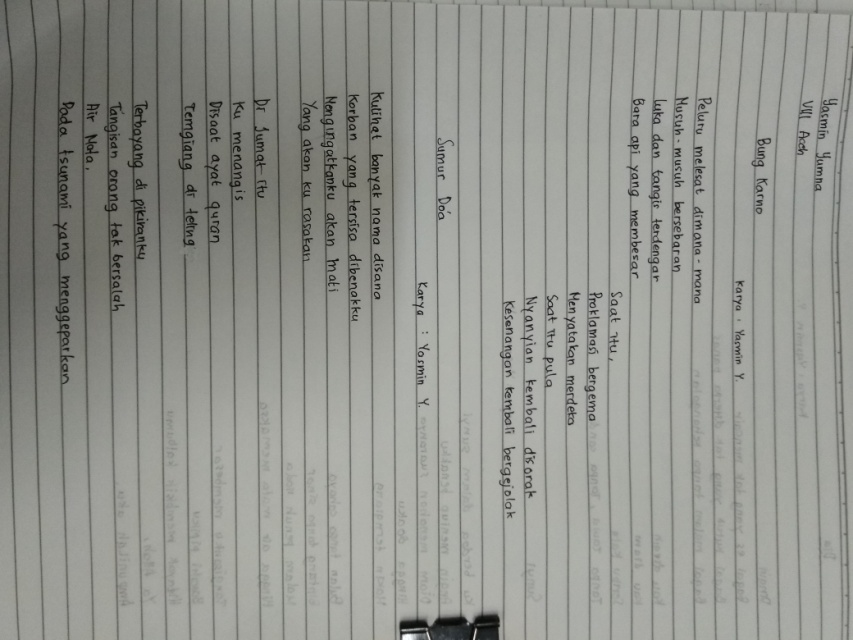 Yasmin Yumna
VIII Aceh
Bung Karno
Karya : Yasmin Y.
Peluru melesat dimana-mana
Musuh-musuh bersebaran
Luka dan tangis terdengar
Bara api yang membesar
Saat itu,
Proklamasi bergema
Menyatakan merdeka
Saat itu pula
Nyanyian kembali disorak
Kesenangan kembali bergejolak
Sumur Do'a
Karya : Yasmin Y.
Kulihat banyak nama disana
Korban yang tersisa dibenakku
Mengingatkanku akan mati
Yang akan ku rasakan
Di Jumat itu
Ku menangis
Disaat ayat quran
Terngiang di teling
Terbayang di pikiranku
Tangisan orang tak bersalah
Air Mata,
Pada tsunami yang menggeparkan